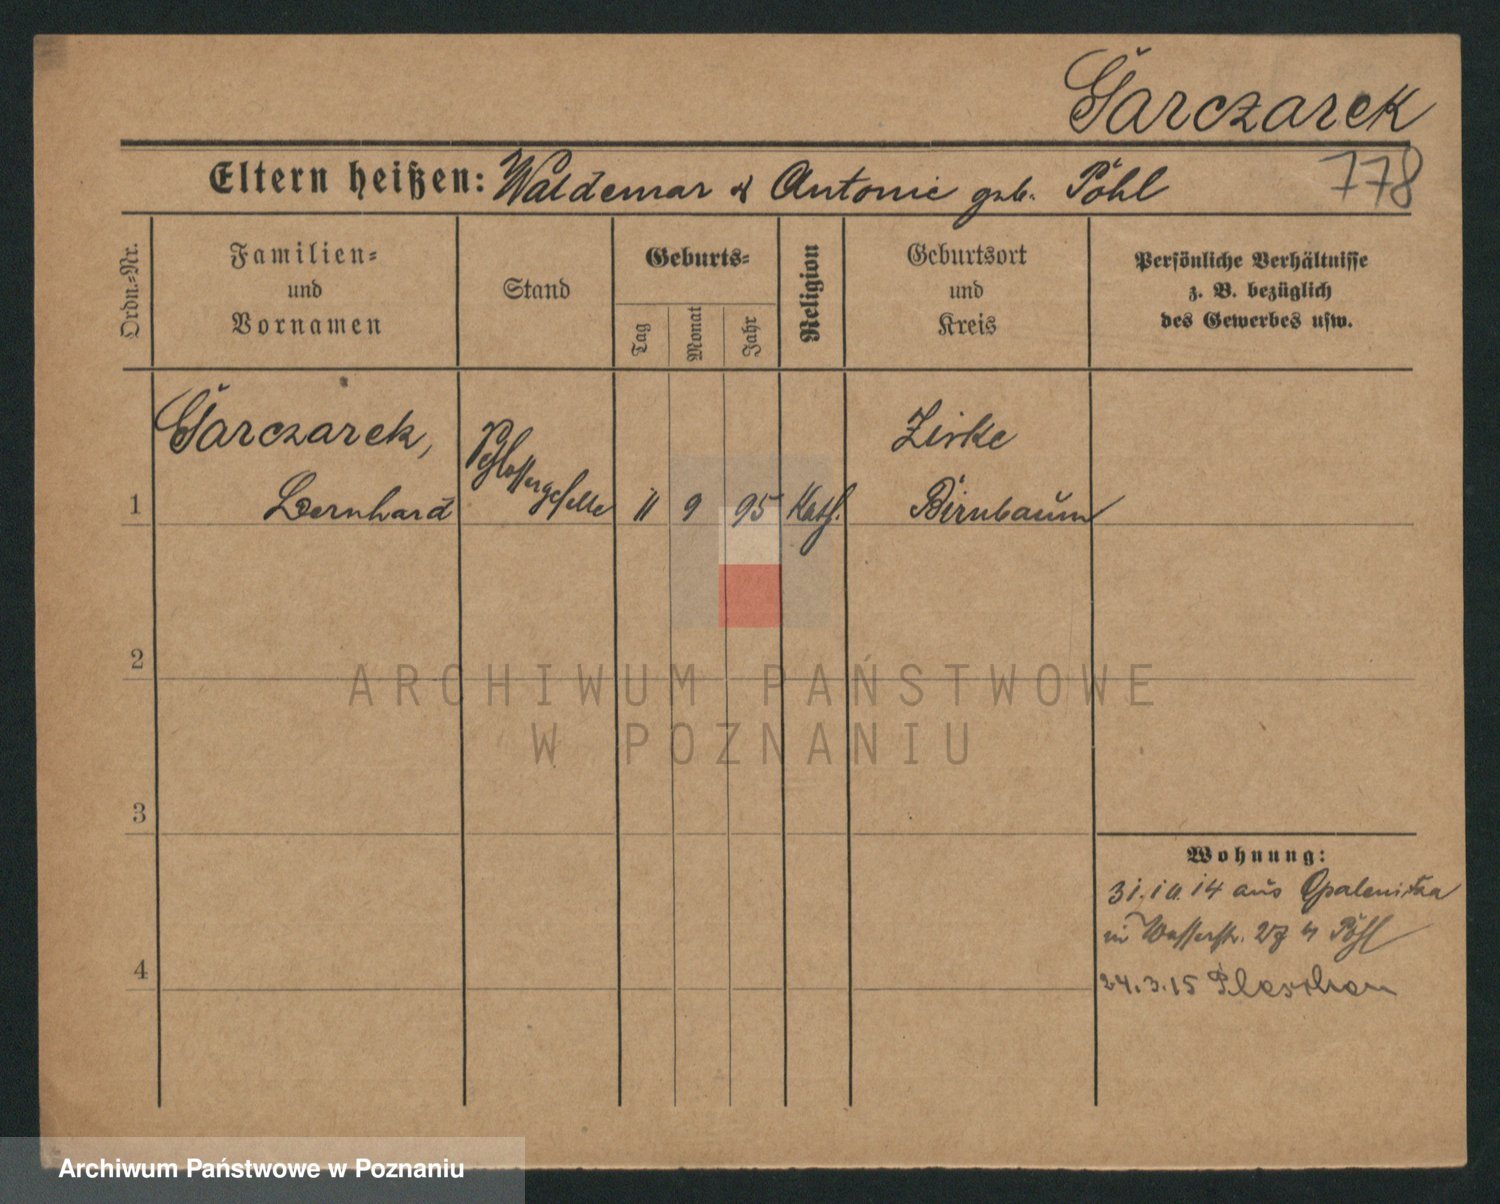 Garczarek
Eltern heißen: Waldemar & Antonie geb. Pöhl
778
Ordn.-Nr.
Familien-
und
Vornamen
Stand
Geburts-
Tag
Monat
Jahr
Religion
Geburtsort
und
Kreis
Persönliche Verhältnisse
z. B. bezüglich
des Gewerbes usw.
Garczarek,
Zirke
1 Bernhard Schlossergeselle 11 9 95 Kath. Birnbaum
2
ARCHIWUM PAŃSTWOWE
W POZNANIU
3
Wohnung:
31.10.14 aus Opalenitza
in Wasserstr. 27 b Pöhl
4
24.3.15 Pleschen
Archiwum Państwowe w Poznaniu